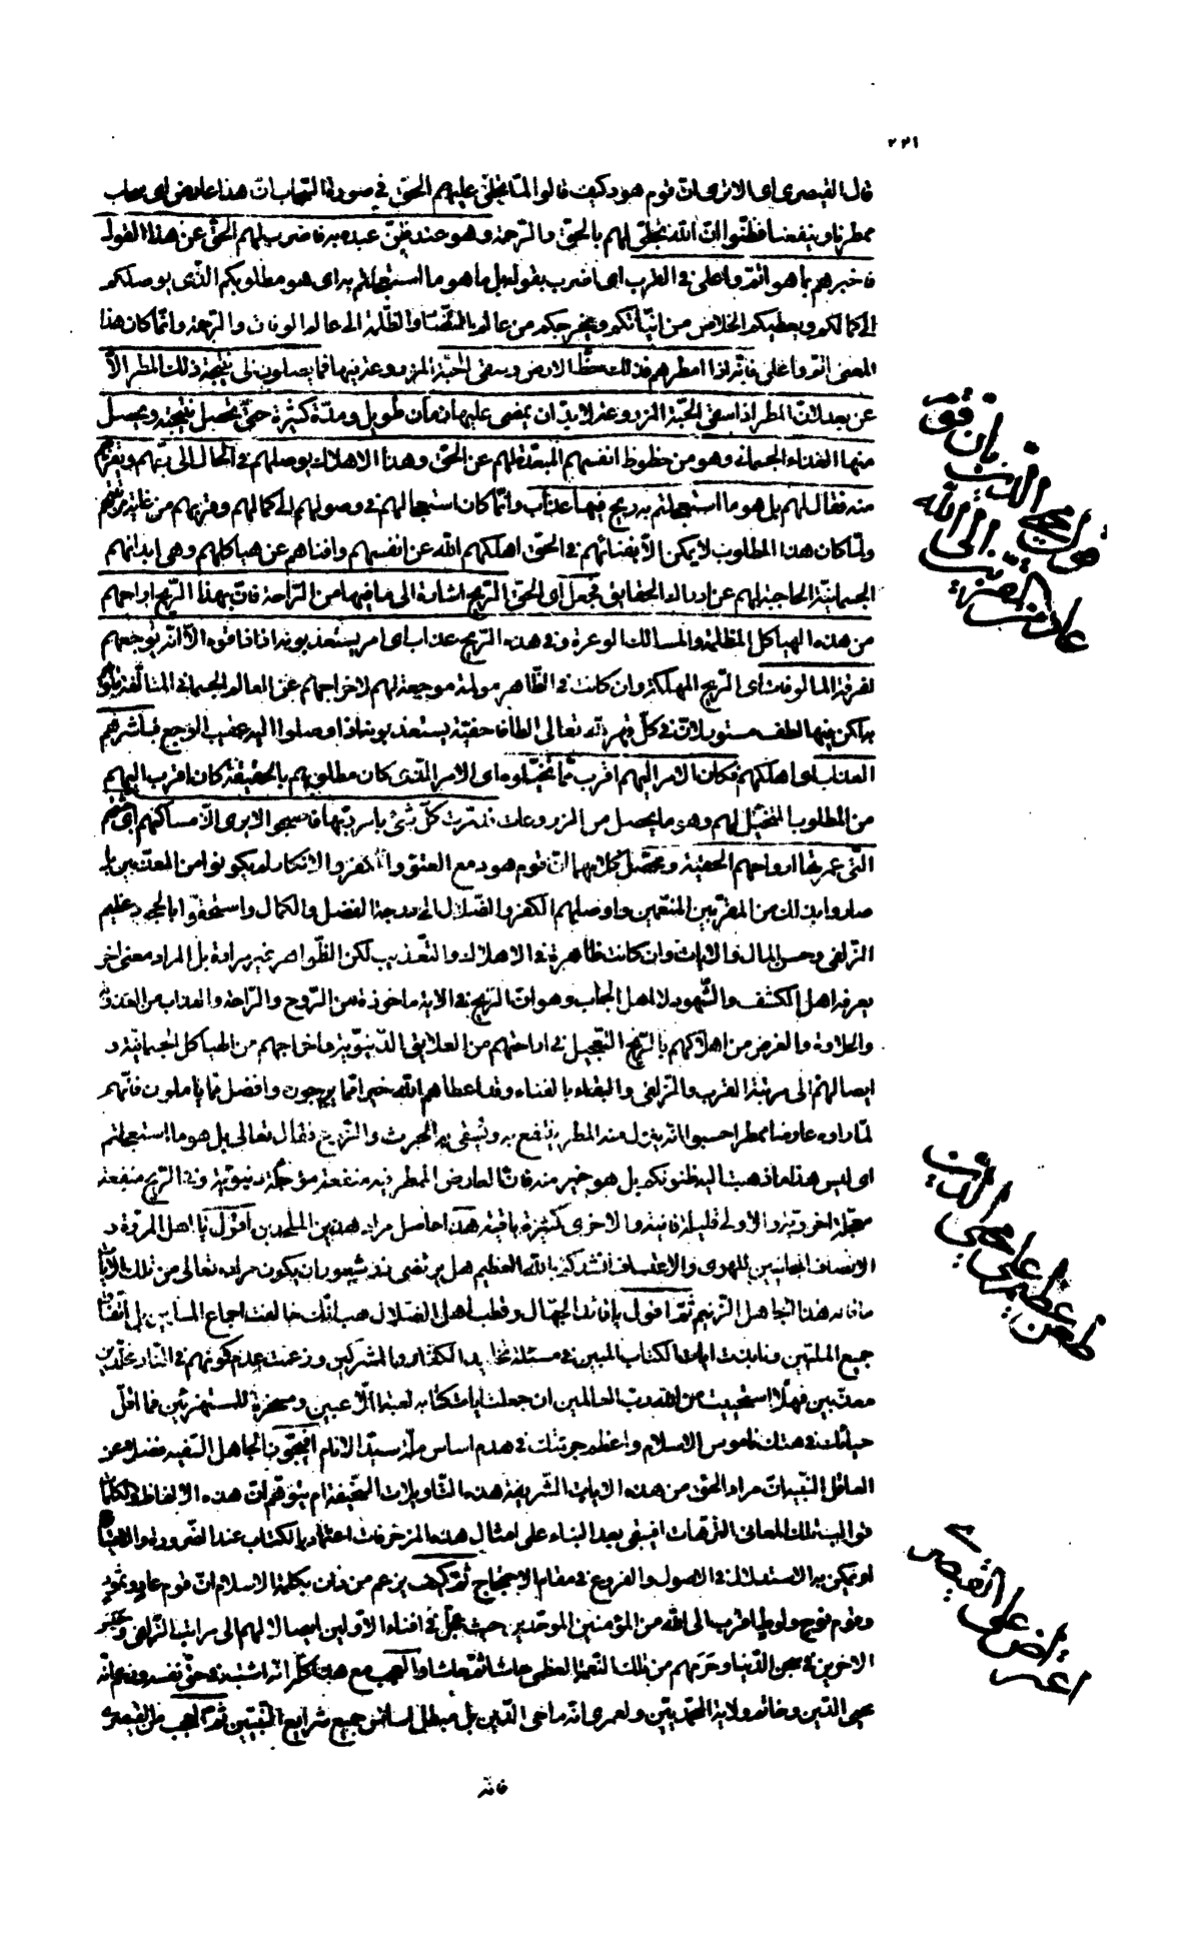 ٢٢١
قال القيصرى اى الا ترى ان قوم هود كيف قالوا لما تجلى عليهم الحق فى صورة السحاب ان هذا عارض اى سحاب
ممطرنا وينفعنا فظنوا ان الله تجلى لهم بالحق والرحمة وهو عند ظن عبده به فاضرب لهم الحق عن هذا القول
فاخبرهم بما هو اتم واعلى فى القرب اى اضرب بقوله بل هو ما استعجلتم به اى هو مطلوبكم الذى يوصلكم
الى كمالكم ويعطيكم الخلاص من انياتكم ويخرجكم من عالم والظلمة الى عالم الوفاق والرحمة وانما كان هذا
المعنى اتم واعلى فانه اذا امطرهم فذلك حظ الارض وسقى الحبة المزروعة فيها فما يصلون الى نتيجة ذلك المطر الا
عن بعد لان المطر اذا سقى الحبة المزروعة لابد ان يمضى عليها زمان طويل ومدة كثيرة حتى يحصل نتيجته ويحصل
منها الغذاء الجسمانى وهو من حظوظ انفسهم المبعدة لهم عن الحق وهذا الاهلاك يوصلهم فى الحال الى ربهم ويقربهم
منه فقال لهم بل هو ما استعجلتم به ريح فيها عذاب وانما كان استعجالهم فى وصولهم الى كمالهم وقربهم من
ولما كان هذا المطلوب لا يمكن الا بفنائهم فى الحق اهلكهم الله عن انفسهم وافناهم عن هياكلهم وهى ابدانهم
الجسمانية الحاجبة لهم عن ادراك الحقايق فجعل اى الحق الريح اشارة الى ما فيها من الراحة فان بهذا الريح اراحهم
من هذه الهياكل المظلمة والمسالك الوعرة وفى هذه الريح عذاب اى امر يستعذبونه اذا ذاقوه الا انه يوجعهم
لفرقة المالوفات اى الريح المهلكة وان كانت فى الظاهر مولمة موجعة لهم لاخراجهم عن العالم الجسمانى
لكن فيها لطف مستور لان فى كل قهر لله تعالى الطافا خفية يستعذبونه اذا وصلوا اليه عقيب الوجع فباشرهم
العذاب اى اهلكهم فكان الامر اليهم اقرب مما تخيلوه اى الامر الذى كان مطلوبهم بالحقيقة كان اقرب اليهم
من المطلوب المتخيل لهم وهو ما يحصل من المزروعات فدمرت كل شئ بامر ربها فاصبحوا لا يرى الا مساكنهم اى
التى عمرتها ارواحهم الحقية ومحصل كلامهما ان قوم هود مع العتو والكفر والانكار لم يكونوا من المعذبين بل
صاروا بذلك من المقربين المنعمين واوصلهم الكفر والضلال الى درجة الفضل والكمال واستحقوا عظيم
الزلفى وحسن المال والايات وان كانت ظاهرة فى الاهلاك والتعذيب لكن الظواهر غير مرادة بل المراد معنى اخر
يعرفه اهل الكشف والشهود لا اهل الحجاب وهو ان الريح فى الاية ماخوذة من الروح والراحة والعذاب من العذوبة
والحلاوة والغرض من اهلاكهم بالريح التعجيل فى اراحتهم من العلايق الدنيوية واخراجهم من الهياكل الجسمانية و
ايصالهم الى مرتبة القرب والزلفى والبقاء بالفناء وقد اعطاهم الله خيرا مما يرجون وافضل مما ياملون فانهم
لما راوه عارضا ممطرا حسبوا انه ينزل منه المطر ينتفع به ويسقى به الحرث والزرع فقال تعالى بل هو ما استعجلتم
اى ليس هذا ما ذهبت اليه ظنونكم بل هو خير منه فان العارض الممطر فيه منفعة مؤجلة دنيوية وفى الريح منفعة
معجلة اخروية والاولى قليلة فانية والاخرى كثيرة باقية هذا حاصل مراد هذين الملحدين اقول يا اهل المروة و
الانصاف المجانبين للهوى والاعتساف انشدكم بالله العظيم هل يرتضى ذو شعور ان يكون مراده تعالى من تلك الايات
ما قاله هذا الجاهل الزنيم ثم اقول يا قائد الجهال وقطب اهل الضلال هب انك خالفت اجماع المسلمين بل اتفاق
جميع المليين ونابذت ايات الكتاب المبين فى مسئلة تخليد الكفار والمشركين وزعمت عدم كونهم فى النار مخلدين
معذبين فهلا استحييت من الله رب العالمين ان جعلت ايات كتابه لعبة للاعبين ومسخرة للمستهزئين فما اقل
حيائك فى هتك ناموس الاسلام واعظم جرئتك فى هدم اساس ملة سيد الانام افيجوز الجاهل السفيه فضلا عن
العاقل النبيه ان مراد الحق من هذه الايات الشريفة هذه التاويلات السخيفة ام يتوهم ان هذه الالفاظ والكلمات
قوالب لتلك المعانى الترهات افيبقى بعد البناء على امثال هذه المزخرفات اعتماد بالكتاب عند الضرورة
او يمكن به الاستدلال فى الاصول والفروع فى مقام الاحتجاج ثم كيف يزعم من فاه بكلمة الاسلام ان قوم عاد وثمود
وقوم نوح ولوط اقرب الى الله من المؤمنين الموحدين حيث عجل فى افناء الاولين ايصالا لهم الى مراتب الزلفى وحبس
الاخرين فى سجن الدنيا وحرمهم من تلك النعمة العظمى حاشا ثم حاشا والعجب مع هذا كله انه اشتبه فى حق نفسه وزعم انه
محيى الدين وخاتم ولاية المحمديين ولعمرى انه ماحى الدين بل مبطل اساس جميع شرايع النبيين ثم العجب من القيصرى
فانه
قول محيى الدين بان قوم
عاد من المقربين الى الله
طعن عظيم على محيى الدين
اعتراض على القيصرى